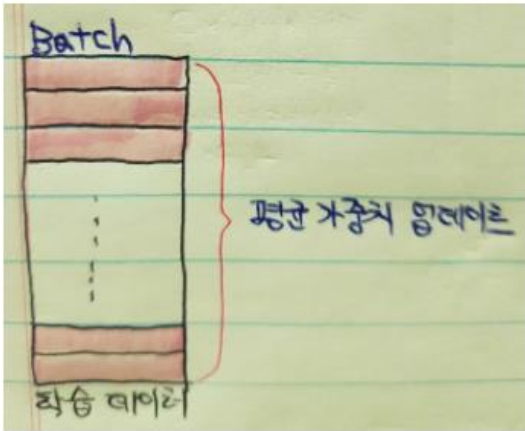 Batch
평균 가중치 업데이트
학습 데이터